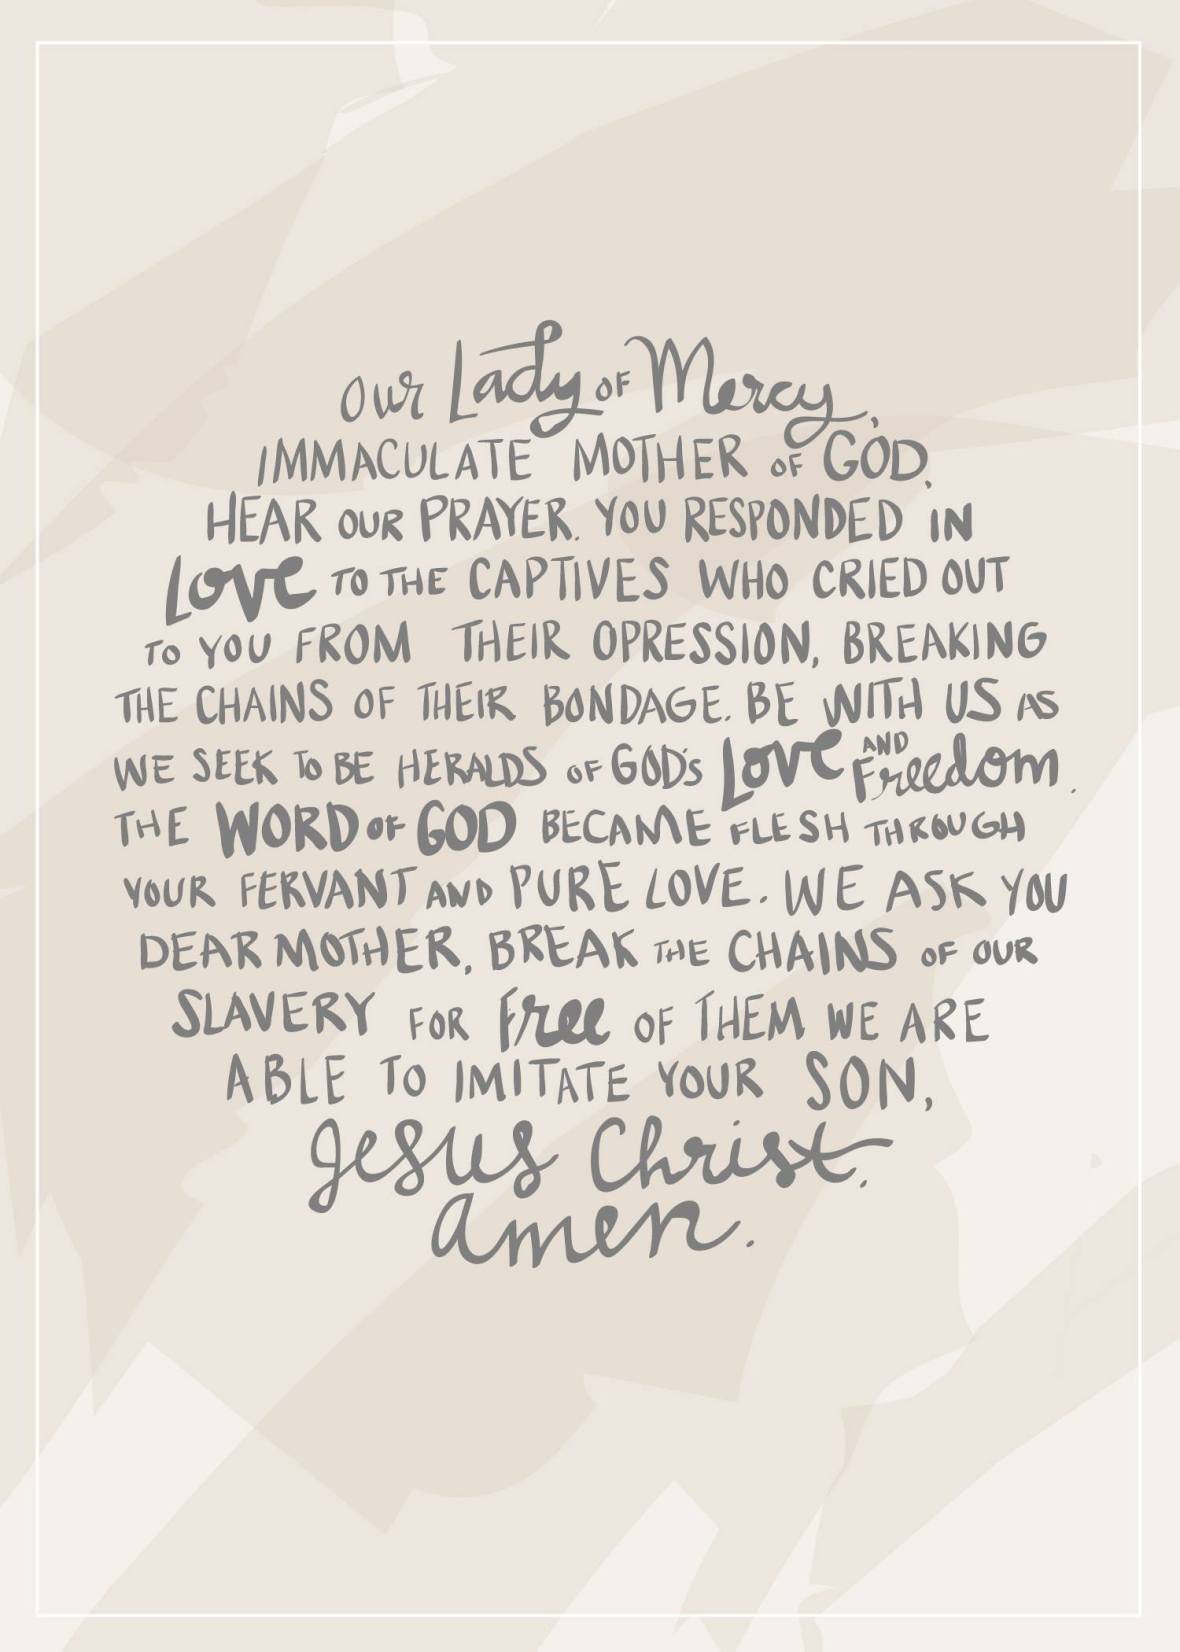 Our Lady of Mercy,
IMMACULATE MOTHER OF GOD,
HEAR OUR PRAYER. YOU RESPONDED IN
LOVE TO THE CAPTIVES WHO CRIED OUT
TO YOU FROM THEIR OPRESSION, BREAKING
THE CHAINS OF THEIR BONDAGE. BE WITH US AS
WE SEEK TO BE HERALDS OF GOD'S LOVE AND Freedom.
THE WORD OF GOD BECAME FLESH THROUGH
YOUR FERVANT AND PURE LOVE. WE ASK YOU
DEAR MOTHER, BREAK THE CHAINS OF OUR
SLAVERY FOR free OF THEM WE ARE
ABLE TO IMITATE YOUR SON,
Jesus Christ.
Amen.